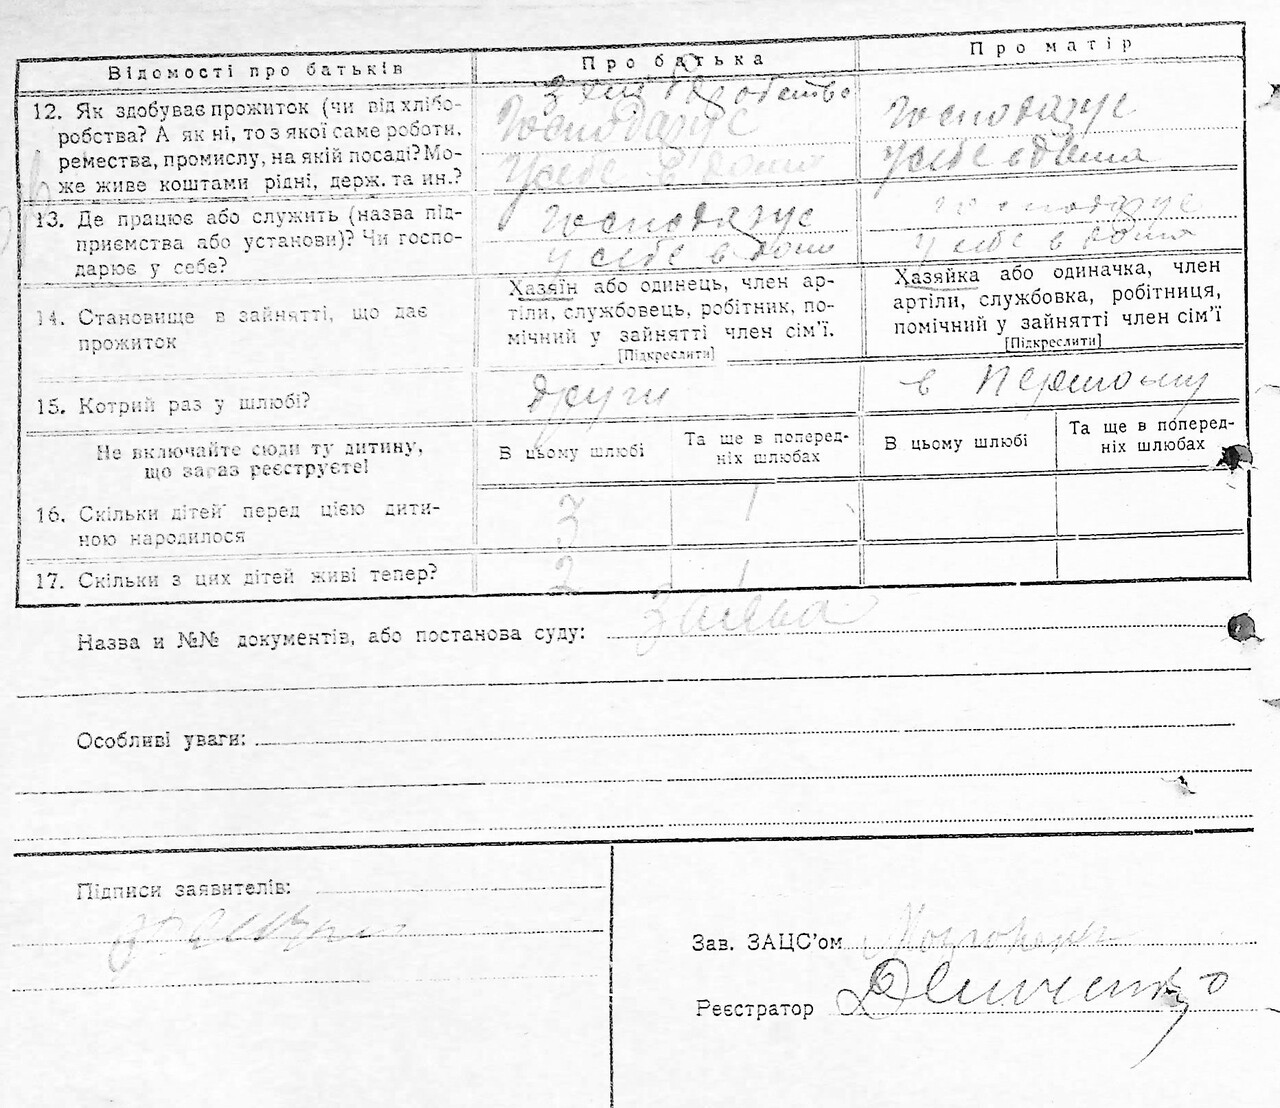 Відомості про батьків
Про батька
Про матір
12. Як здобуває прожиток (чи від хлібо-
робства? А як ні, то з якої саме роботи,
ремества, промислу, на якій посаді? Мо-
же живе коштами рідні, держ. та ин.?
З хліборобства
Господарує
У себе в дома
Господарує
У себе в дома
13. Де працює або служить (назва під-
приємства або установи)? Чи госпо-
дарює у себе?
Господарує
у себе в дома
Господарує
у себе в дома
14. Становище в зайнятті, що дає
прожиток
Хазяїн або одинець, член ар-
тіли, службовець, робітник, по-
мічний у зайнятті член сім'ї.
[Підкреслити]
Хазяйка або одиначка, член
артіли, службовка, робітниця,
помічний у зайнятті член сім'ї
[Підкреслити]
15. Котрий раз у шлюбі?
други
в першому
Не включайте сюди ту дитину,
що зараз реєструєте!
В цьому шлюбі
Та ще в поперед-
ніх шлюбах
В цьому шлюбі
Та ще в поперед-
ніх шлюбах
16. Скільки дітей перед цією дити-
ною народилося
3
1
17. Скільки з цих дітей живі тепер?
2
1
Назва и №№ документів, або постанова суду: Заява
Особливі уваги:
Підписи заявителів:
Зав. ЗАЦС'ом
Реєстратор